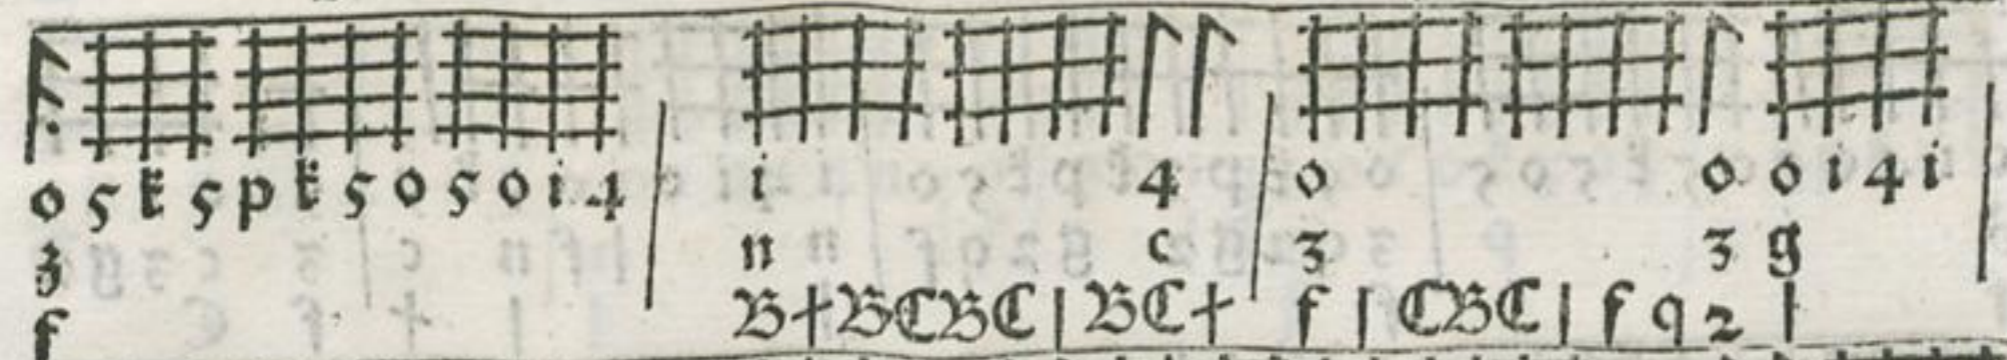 o 5 k 5 p k 5 o 5 o i 4 | i 4 | o o o i 4 i |
3 n c 3 3 g
f B + B C B C | B C + f | C B C | f q 2 |